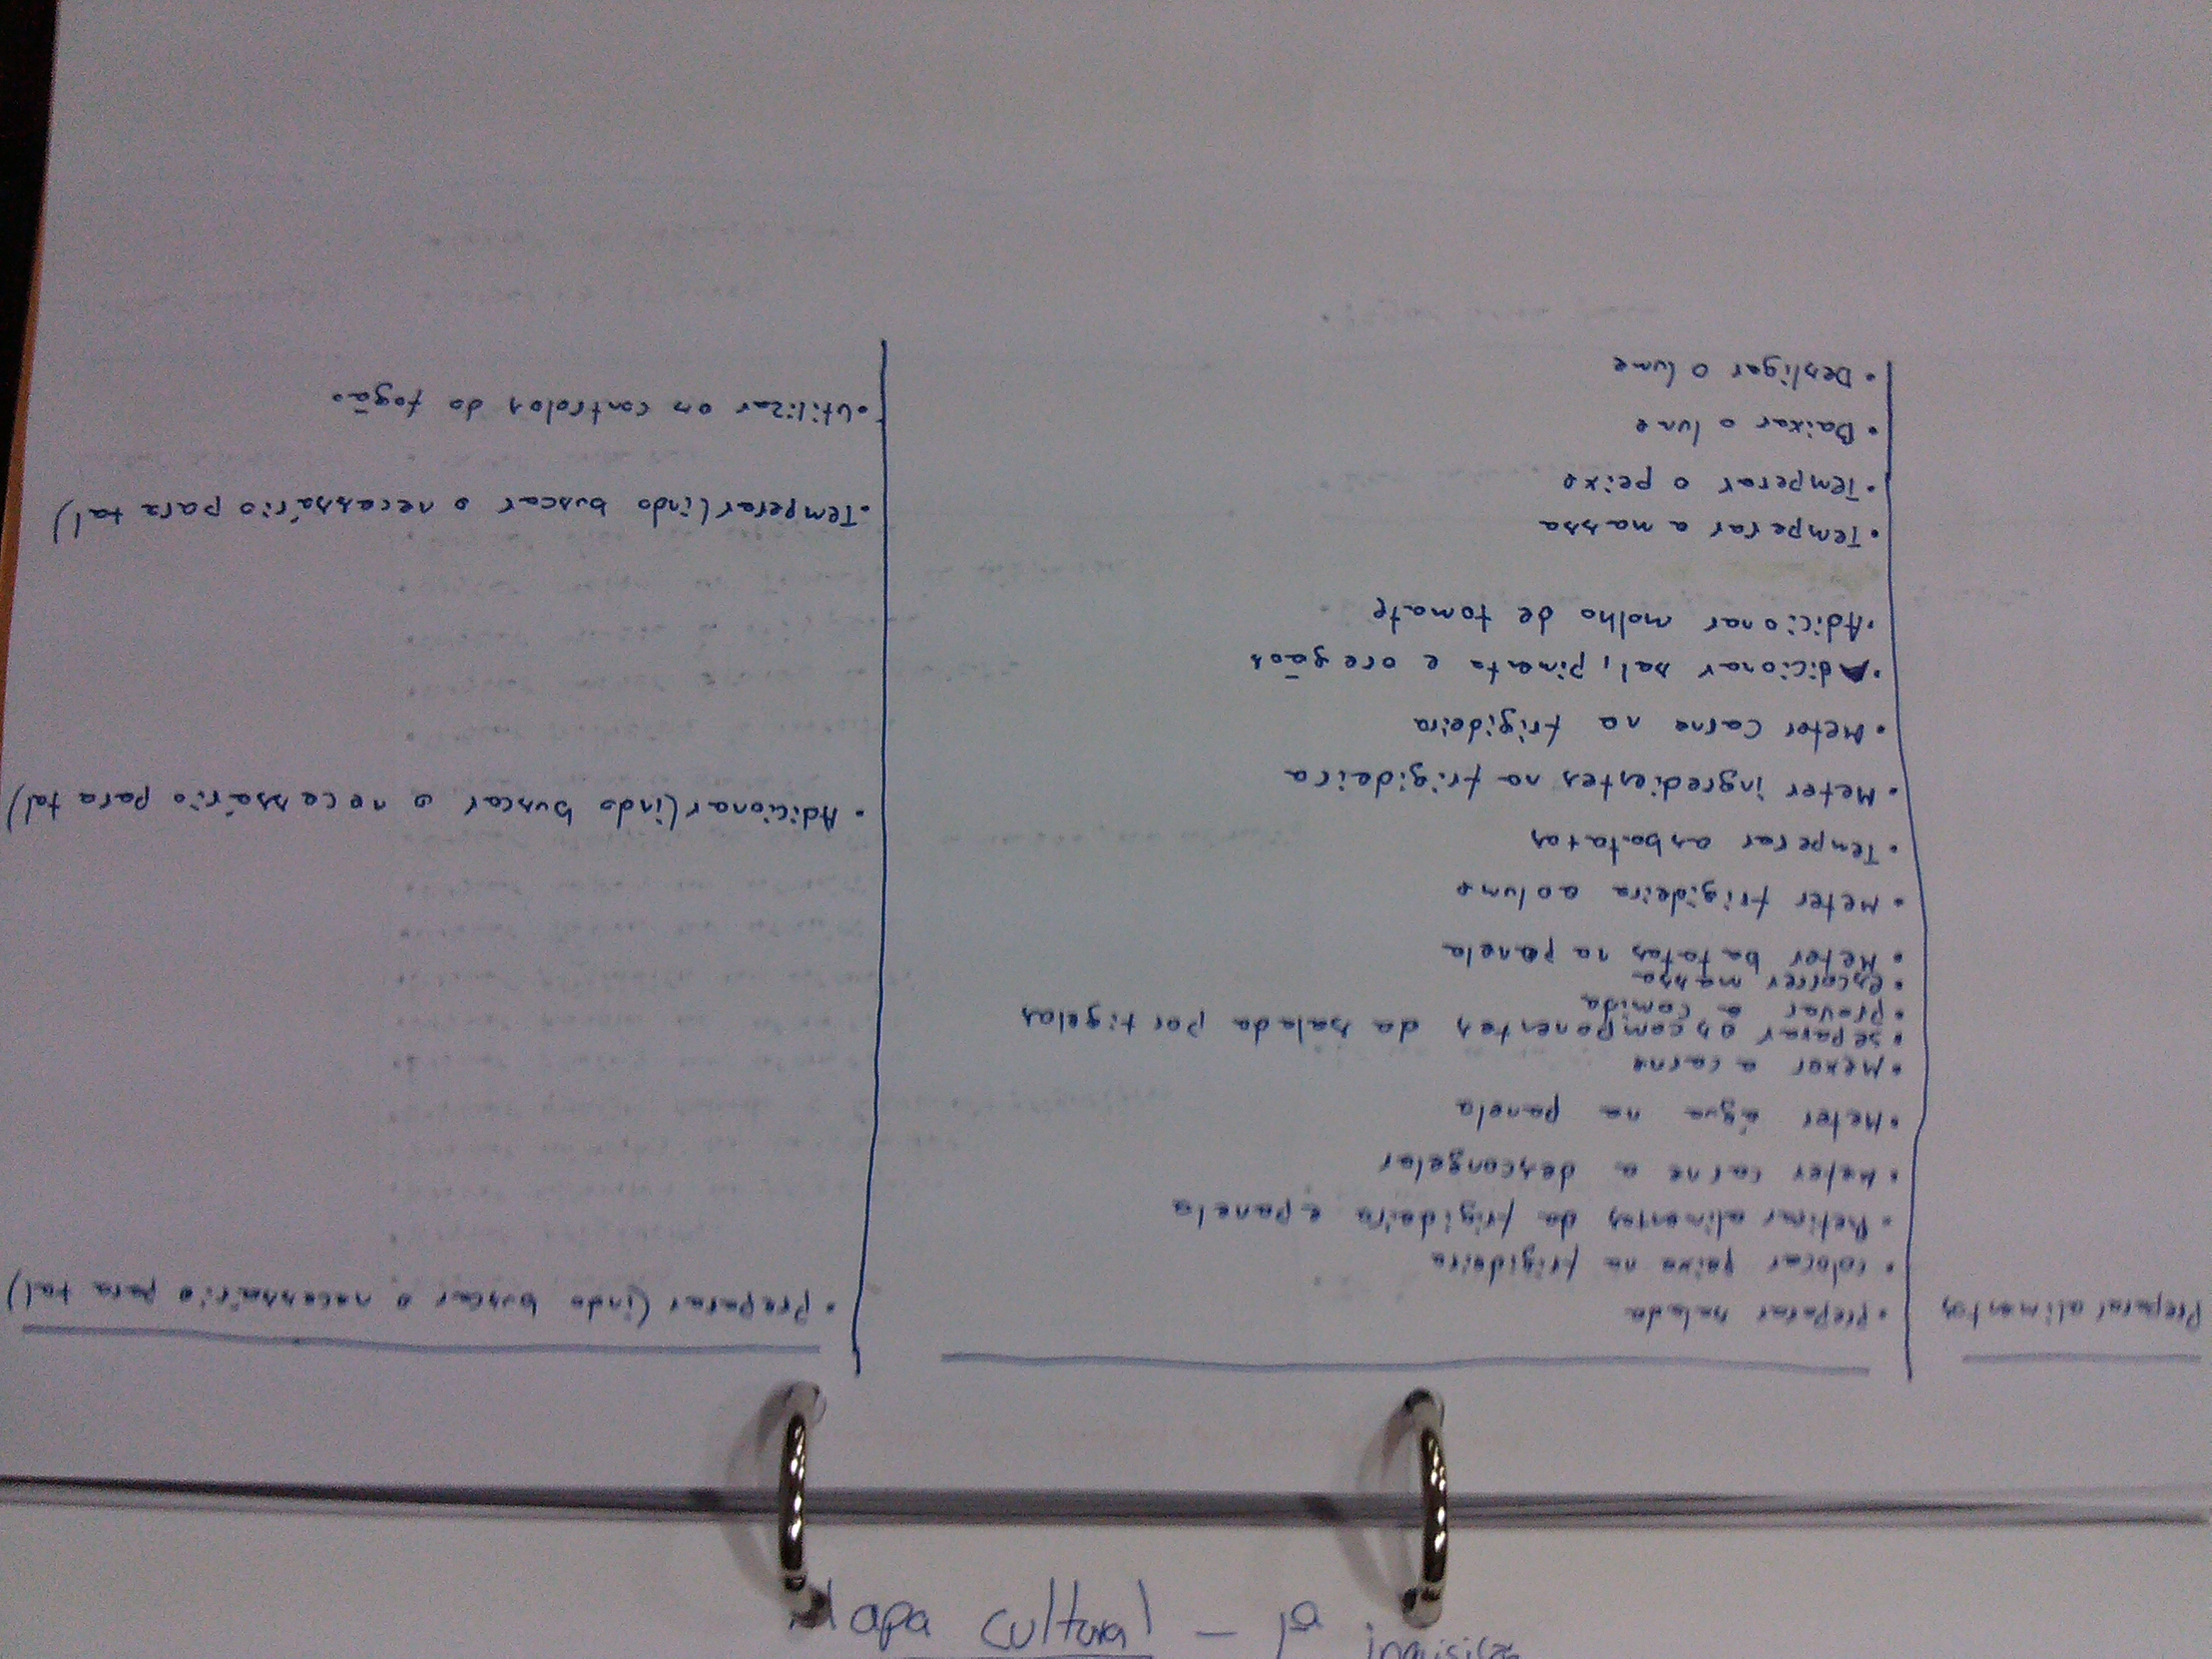 Preparar alimentos
• Preparar salada
• colocar peixe na frigideira
• Retirar alimentos da frigideira e panela
• Meter carne a descongelar
• Meter água na panela
• Mexer a carne
• separar os componentes da salada por tigelas
• provar a comida
• escorrer massa
• Meter batatas na panela
• Meter frigideira ao lume
• Temperar as batatas
• Meter ingredientes na frigideira
• Meter carne na frigideira
• Adicionar sal, pimenta e oregãos
• Adicionar molho de tomate
• Temperar a massa
• Temperar o peixe
• Baixar o lume
• Desligar o lume
• Preparar (indo buscar o necessário para tal)
• Adicionar (indo buscar o necessário para tal)
• Temperar (indo buscar o necessário para tal)
• Utilizar os controlos do fogão
Mapa cultural – 1ª